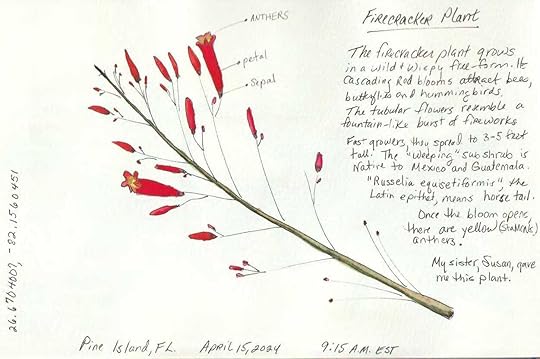 Firecracker Plant
ANTHERS
petal
sepal
The firecracker plant grows
in a wild & wispy free-form. It
Cascading Red blooms attract bees,
butterflies and hummingbirds.
The tubular flowers resemble a
fountain-like burst of fireworks
Fast growers, they spread to 3-5 feet
tall. The "weeping" subshrub is
Native to Mexico and Guatemala.
"Russelia equisetiformis", the
Latin epithet, means horse tail.
Once the bloom opens,
there are yellow (stamens)
anthers.
My sister, Susan, gave
me this plant.
Pine Island, FL. April 15, 2024 9:15 A.M. EST